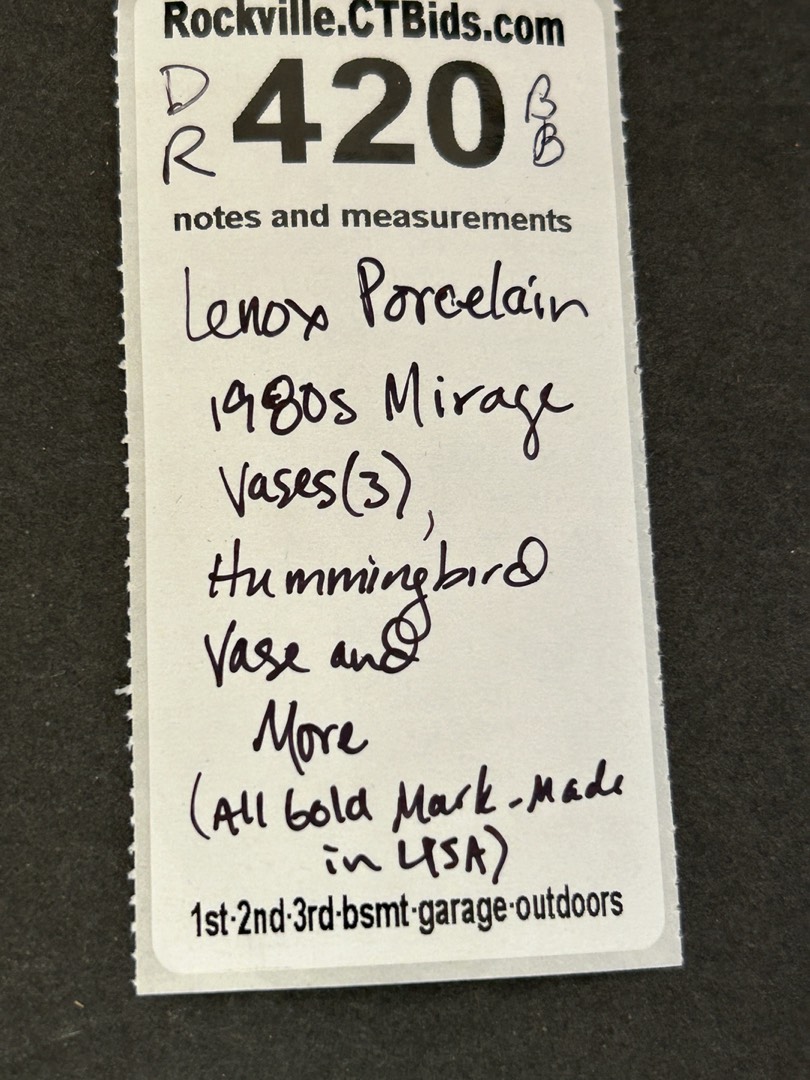 Rockville.CTBids.com
D R 420 B B
notes and measurements
Lenox Porcelain
1980s Mirage
Vases(3),
Hummingbird
Vase and
More
(All Gold Mark - Made
in USA)
1st·2nd·3rd·bsmt·garage·outdoors